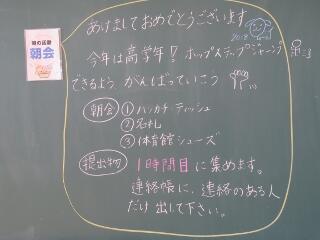 朝の活動
朝会
あけましておめでとうございます
2018
今年は高学年！ホップステップジャンプ
できるよう がんばっていこう
朝会 ①ハンカチ・ティッシュ
②名札
③体育館シューズ
提出物 1時間目に集めます。
連絡帳に、連絡のある人
だけ出して下さい。